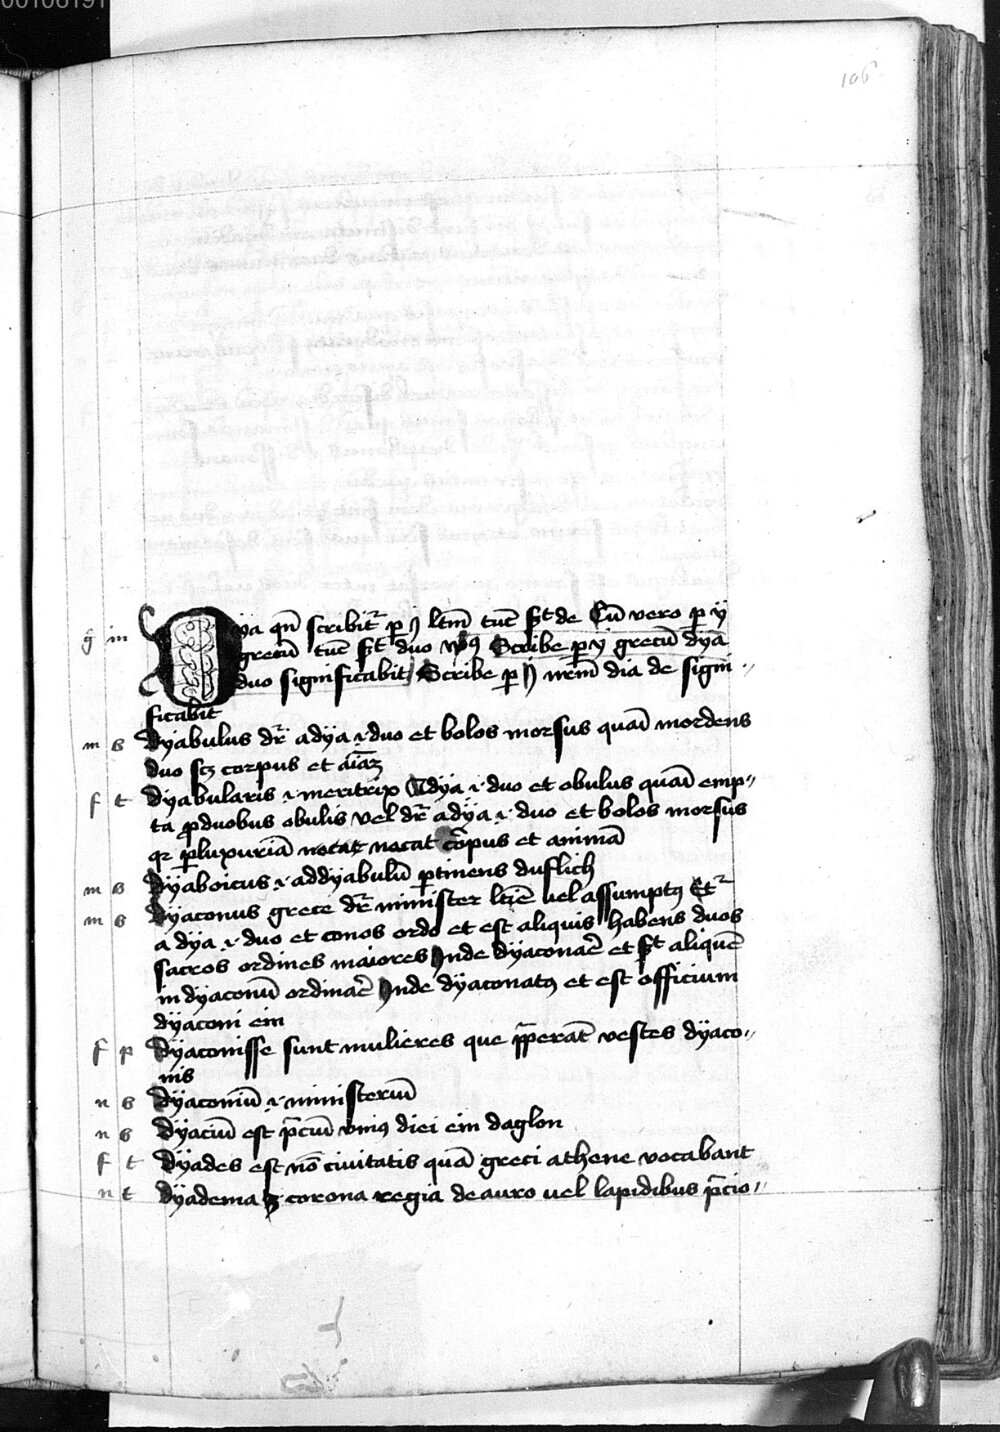 00106191
106
g̃ m Dya qn̄ scribitr̃ p̱ j ltm̄ tūc sꝫt de Cū vero p̱ y
grecū tūc sꝫt duo vꝰsꝰ Scribe p̱ y grecū dya
duo significabit Scribe p̱ j nr̄m dia de signi
ficabit
m s Dyabulus dr̄ a dya .i. duo et bolos morsus quasī mordens
duo scꝫ corpus et aīaꝫ
f t Dyabularis .i. meritrix A dya .i. duo et obulus quasī emp
ta p̱ duobus obulis vel dr̄ a dya .i. duo et bolos morsus
qr p̱ luxuriā necat corpus et animā
m s Dyaboicus .i. ad dyabulū p̱tinens duflich
m s Dyaconus grece dr̄ minister ltīe vel assumptꝰ Et
a dya .i. duo et conos ordo et est aliquis habens duos
sacros ordines maiores Inde dyaconar̄e et sꝫt aliquē
in dyaconū ordinar̄e Inde dyaconatꝰ et est officium
dyaconi ein
f p Dyaconisse sunt mulieres que p̄perāt vestes dyaco
nis
n s Dyaconiū .i. ministeriū
n s Dyaciū est p̄ciū vniꝰ diei ein daglon
f t Dyades est nō ciuitatis quā greci athene vocabant
n t Dyadema corona regia de auro vel lapidibus p̄cio